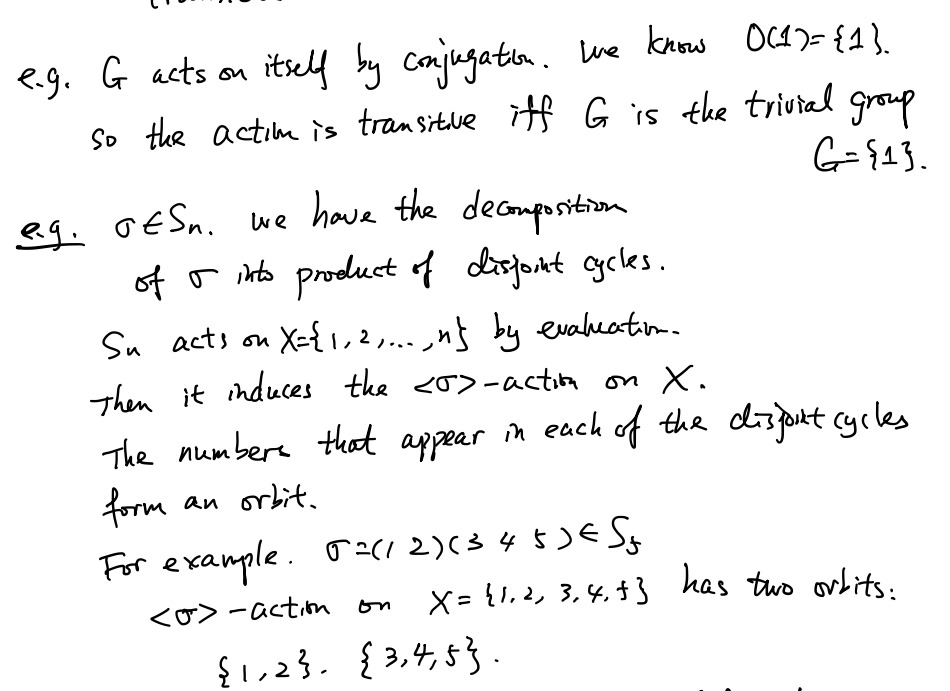 e.g. G acts on itself by conjugation. we know O(1)={1}.
so the action is transitive iff G is the trivial group
G={1}.
e.g. σ∈Sn. we have the decomposition
of σ into product of disjoint cycles.
Sn acts on X={1,2,...,n} by evaluation.
Then it induces the <σ>-action on X.
The numbers that appear in each of the disjoint cycles
form an orbit.
For example. σ=(1 2)(3 4 5)∈S5
<σ>-action on X={1,2,3,4,5} has two orbits:
{1,2}. {3,4,5}.